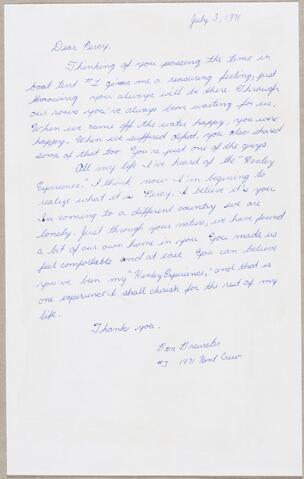 July 3, 1971
Dear Percy,
Thinking of you passing the time in
boat tent #1 gives me a reassuring feeling, just
knowing you always will be there. Through
our rows you've always been waiting for us.
When we came off the water happy, you were
happy. When we suffered defeat, you also shared
some of that too. You're just one of the guys.
All my life I've heard of the "Henley
Experience." I think now I'm begining to
realize what it is. Percy, I believe it's you
In coming to a different country we are
lonely. Just through your nature, we have found
a bit of our own home in you. You made us
feel comfortable and at ease. You can believe
you've been my "Henley Experience," and that is
one experience I shall cherish for the rest of my
life.
Thank you.
Ben Brewster
#3 1971 Kent Crew